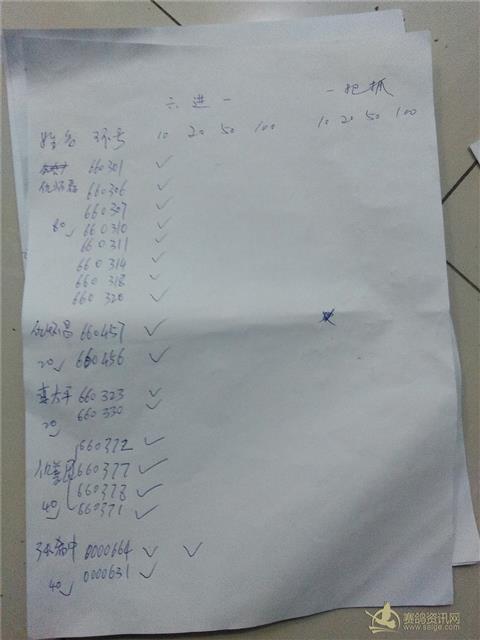 六进一 一把抓
姓名 环号 10 20 50 100 10 20 50 100
660301 ✓
660306 ✓
660307 ✓
80 660310 ✓
660311 ✓
660314 ✓
660318 ✓
660320 ✓
660457 ✓
20 660456 ✓
660323 ✓
20 660330 ✓
660372 ✓
660377 ✓
660378 ✓
40 660371 ✓
0000664 ✓ ✓
40 0000631 ✓
赛鸽资讯网
www.saige.com